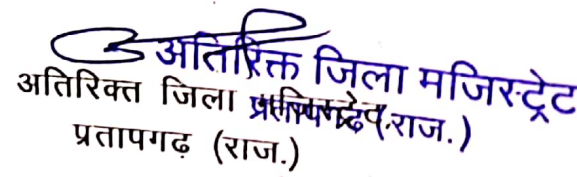 अतिरिक्त जिला मजिस्ट्रेट
प्रतापगढ़ (राज.)
अतिरिक्त जिला मजिस्ट्रेट
प्रतापगढ़ (राज.)